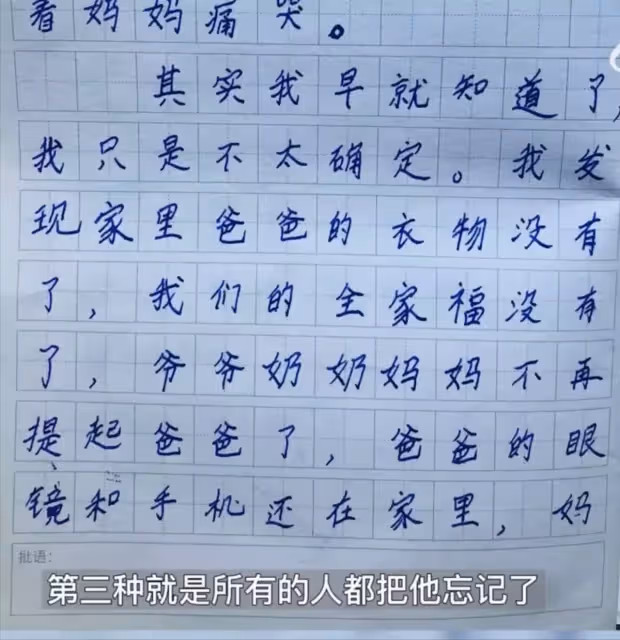 看妈妈痛哭。
其实我早就知道了,
我只是不太确定。我发
现家里爸爸的衣物没有
了,我们的全家福没有
了,爷爷奶奶妈妈不再
提起爸爸了,爸爸的眼
镜和手机还在家里,妈
批语:
第三种就是所有的人都把他忘记了